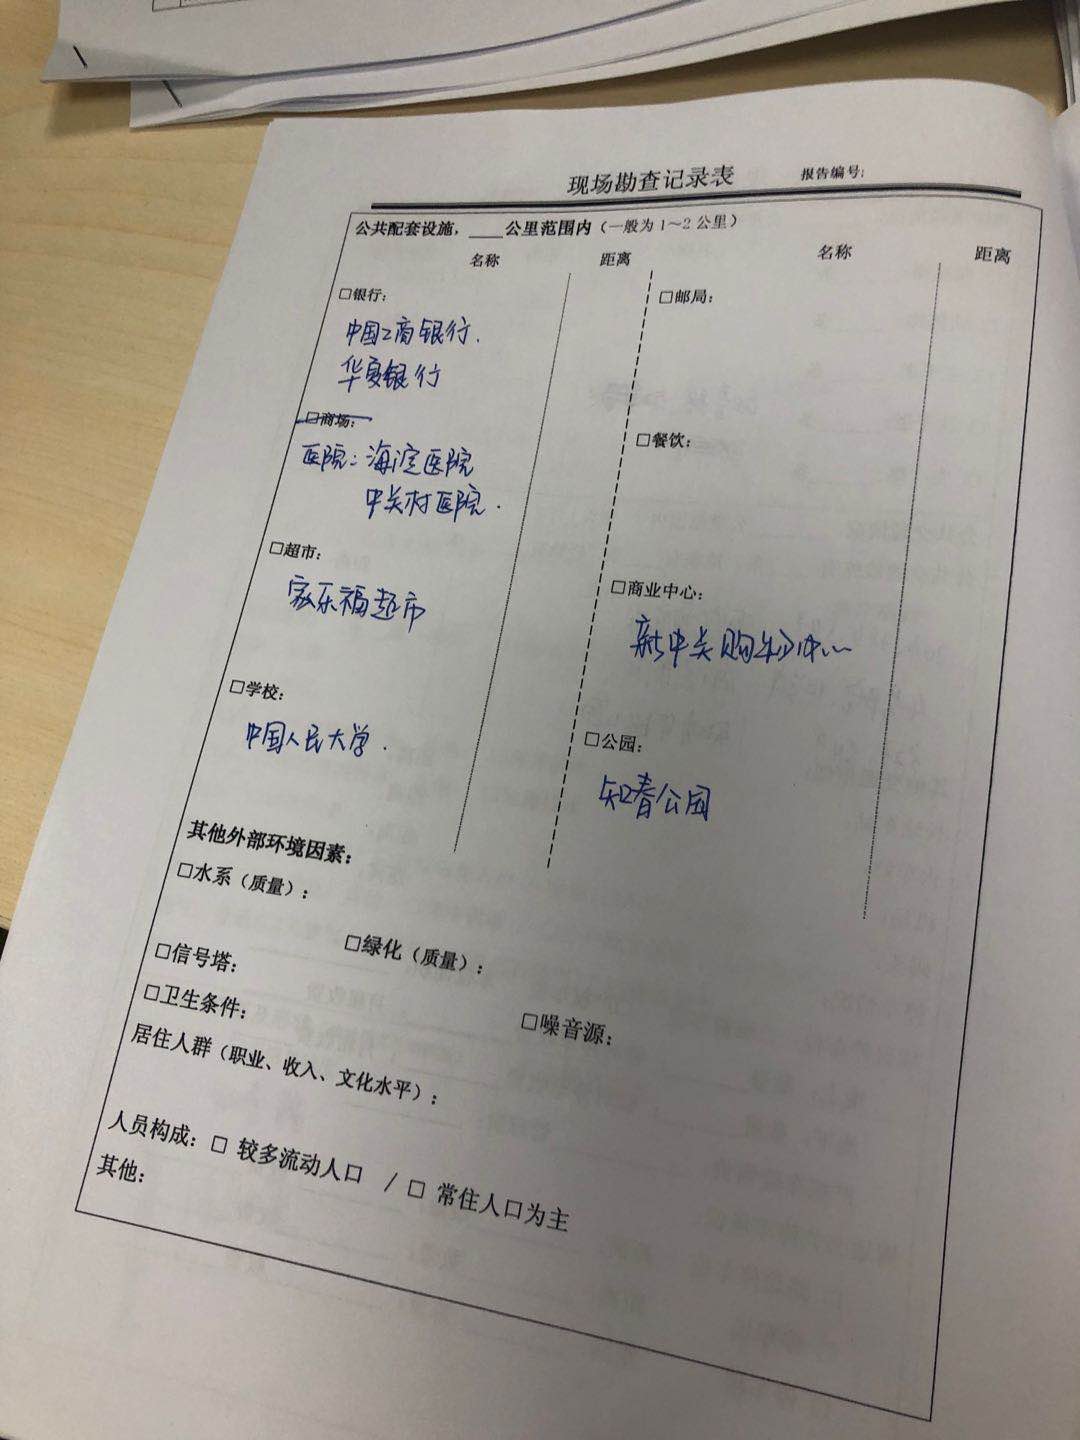 现场勘查记录表 报告编号:
公共配套设施，____公里范围内（一般为1～2公里）
名称 距离 名称 距离
□银行：
中国工商银行.
华夏银行
□商场：
医院：海淀医院
中关村医院.
□超市：
家乐福超市
□学校：
中国人民大学.
□邮局：
□餐饮：
□商业中心：
新中关购物中心
□公园：
知春公园
其他外部环境因素：
□水系（质量）：
□绿化（质量）：
□信号塔：
□卫生条件： □噪音源：
居住人群（职业、收入、文化水平）：
人员构成：□ 较多流动人口 / □ 常住人口为主
其他：